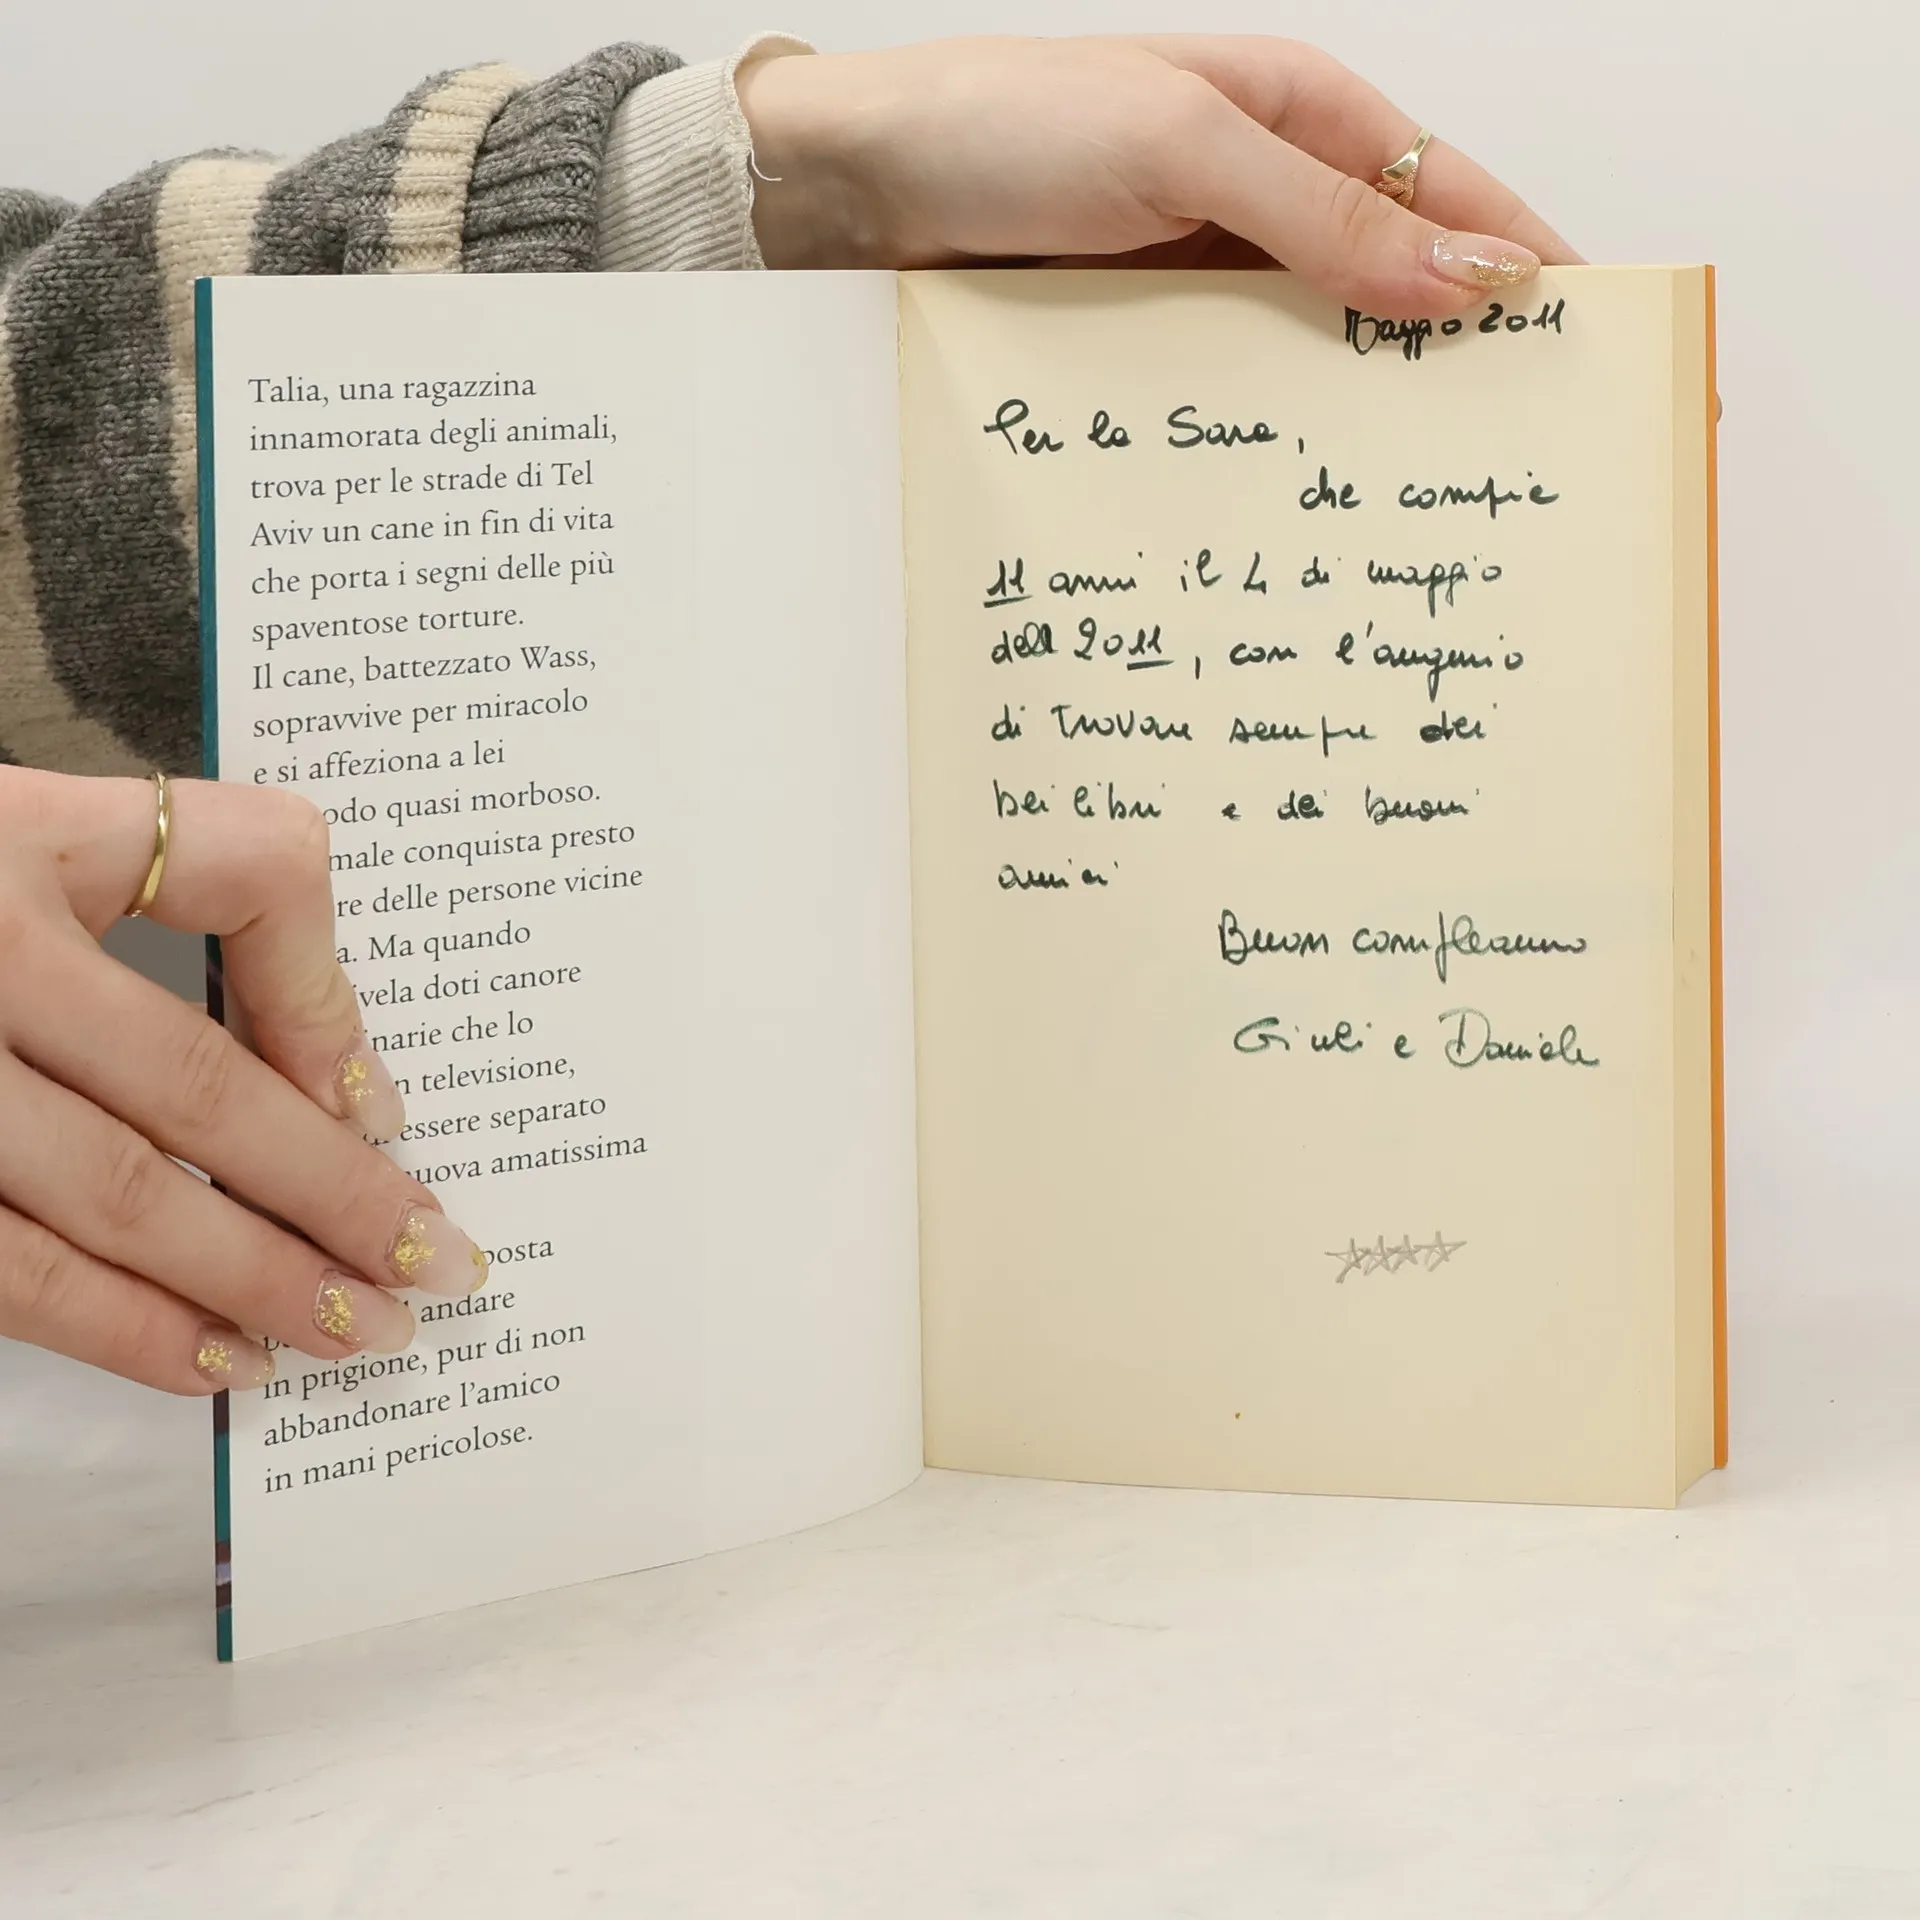 Talia, una ragazzina
innamorata degli animali,
trova per le strade di Tel
Aviv un cane in fin di vita
che porta i segni delle più
spaventose torture.
Il cane, battezzato Wass,
sopravvive per miracolo
e si affeziona a lei
odo quasi morboso.
male conquista presto
re delle persone vicine
a. Ma quando
ivela doti canore
narie che lo
n televisione,
essere separato
uova amatissima
posta
andare
in prigione, pur di non
abbandonare l'amico
in mani pericolose.
Maggio 2011
Per la Sara,
che compie
11 anni il 4 di maggio
del 2011, con l'augurio
di trovare sempre dei
bei libri e dei buoni
amici
Buon compleanno
Giuli e Daniele